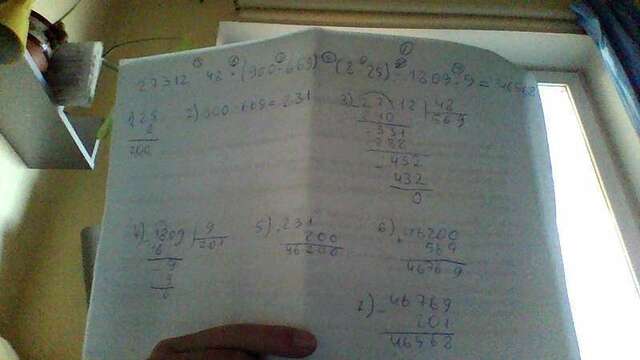 27312 : 48 + (900-669) · (8·25) - 1809 : 9 = 46568
1) 25
8
200
2) 900-669=231
3) 27312 | 48
240 569
331
288
432
432
0
4) 1809 | 9
18 201
9
9
0
5) 231
200
46200
6) 46200
569
46769
7) 46769
201
46568